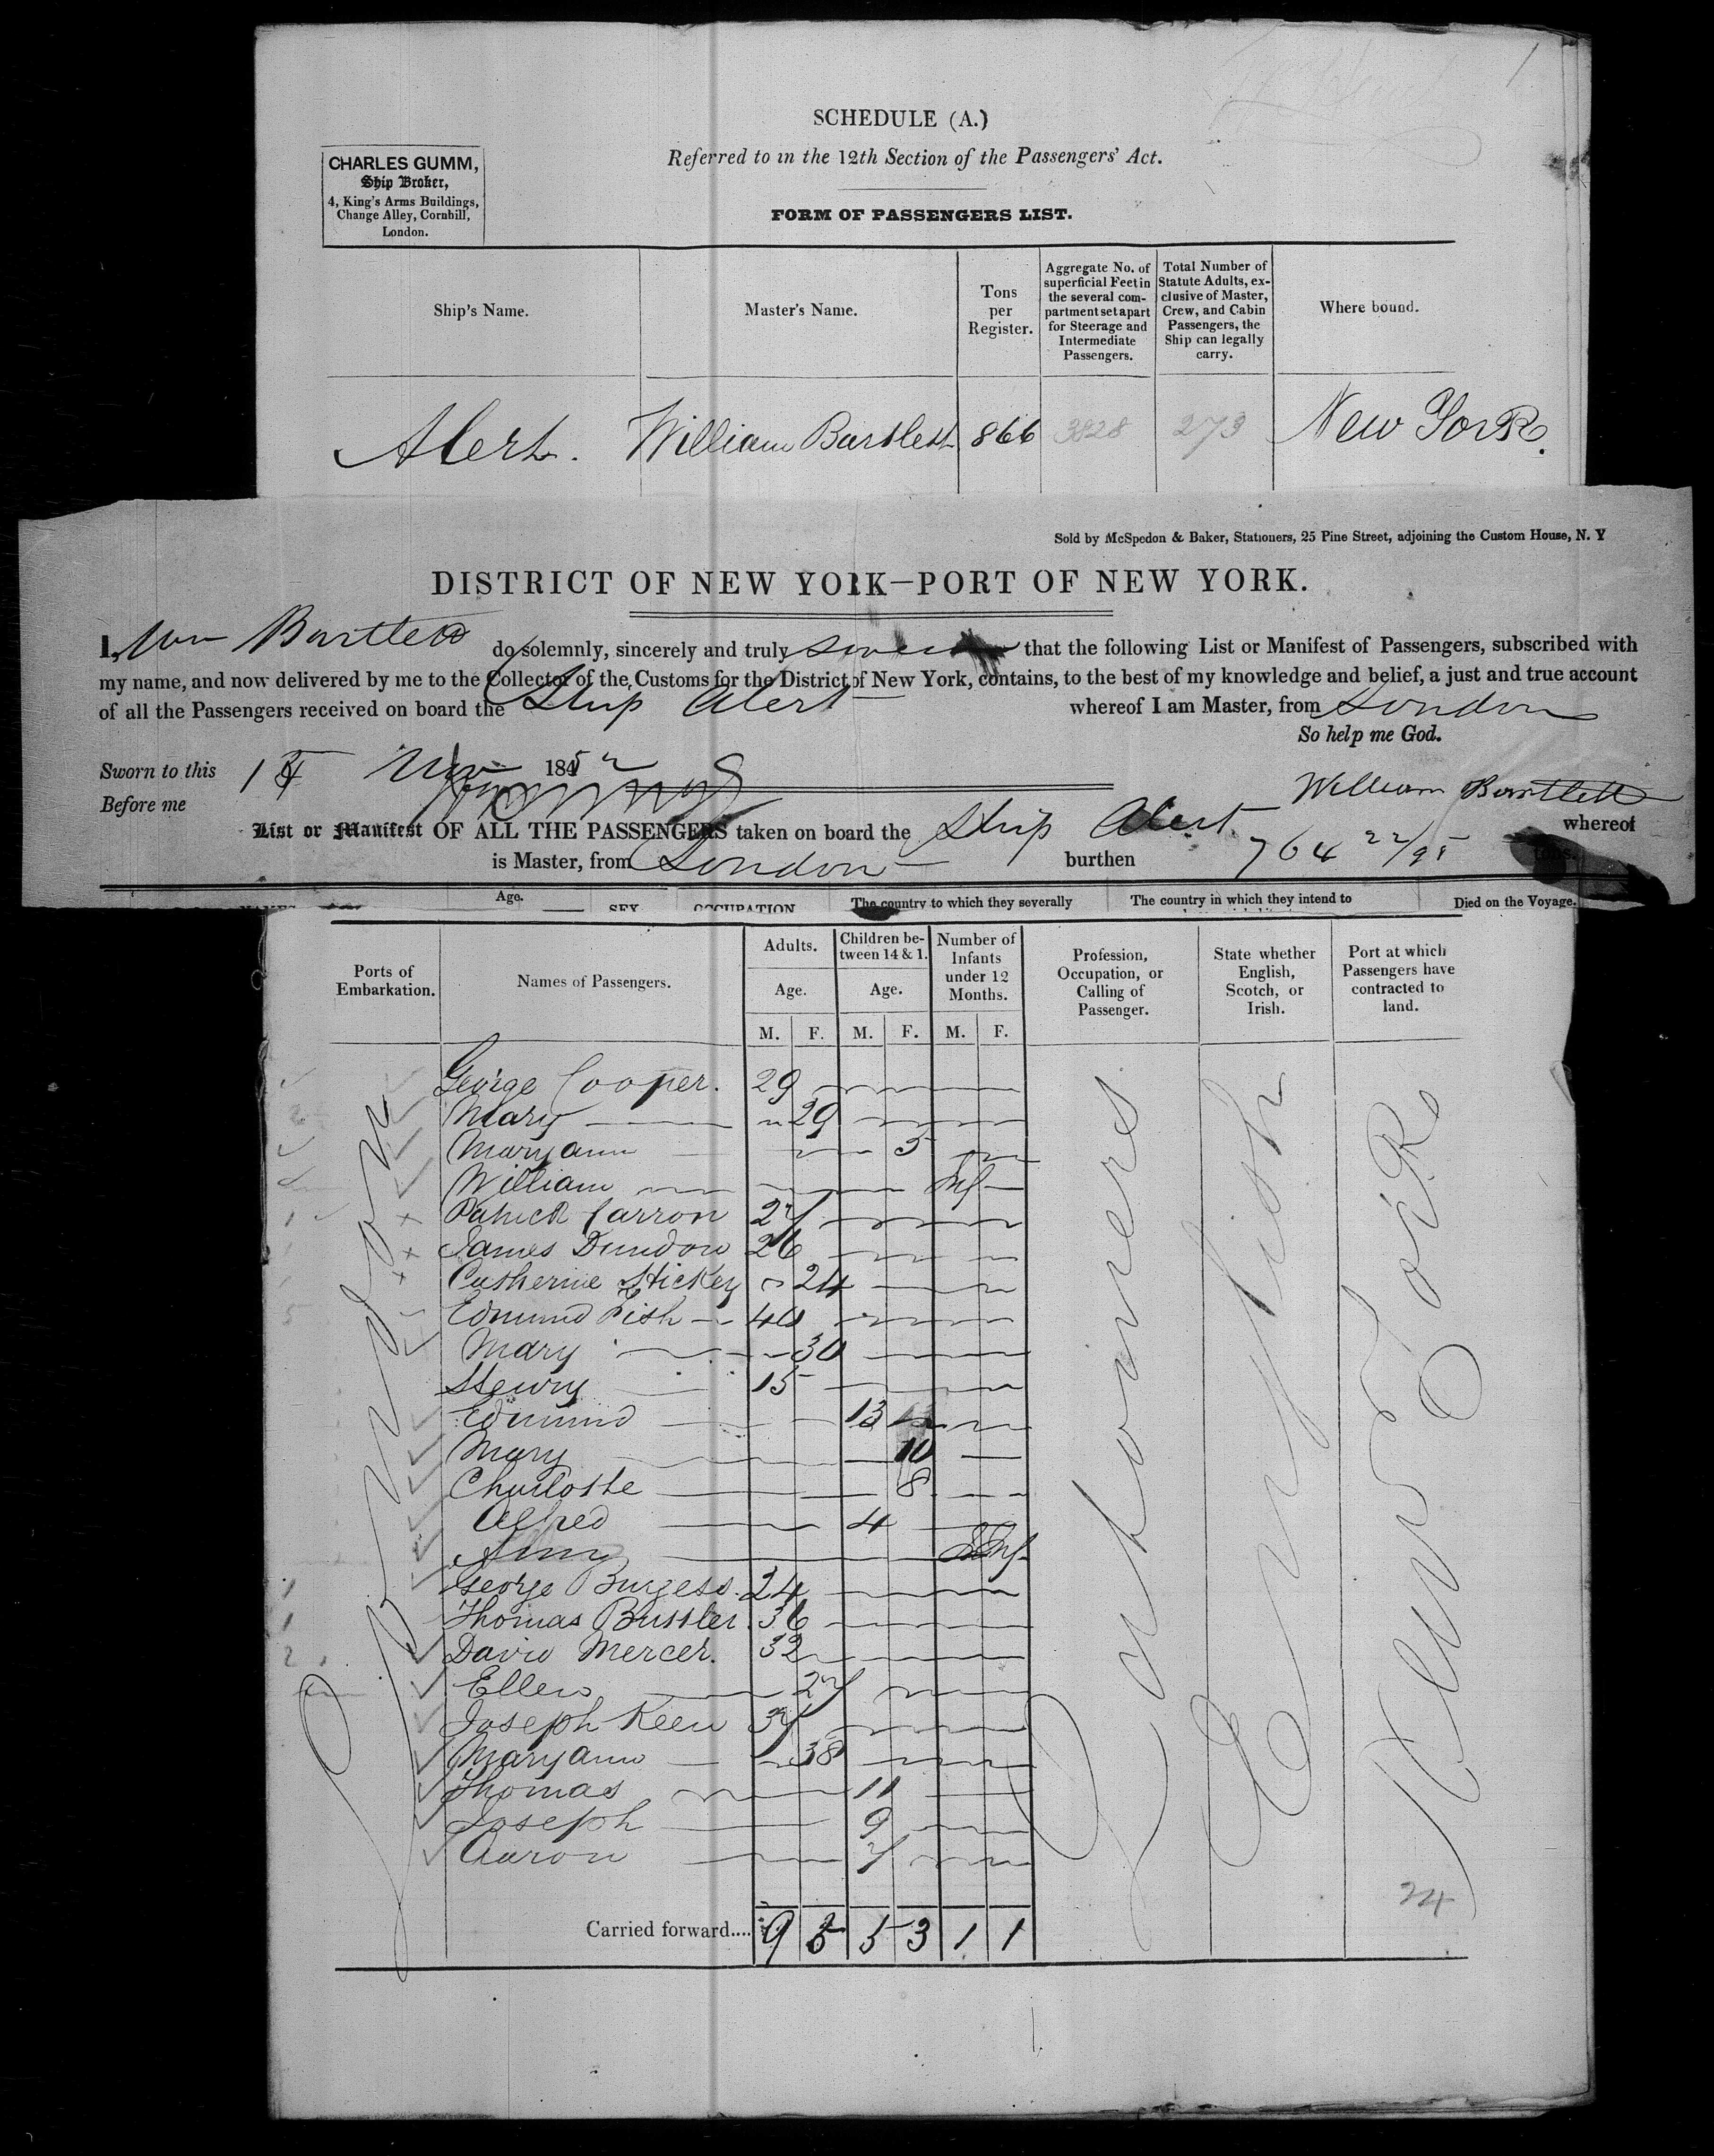 1
SCHEDULE (A.)
Referred to in the 12th Section of the Passengers' Act.
FORM OF PASSENGERS LIST.
CHARLES GUMM,
Ship Broker,
4, King's Arms Buildings,
Change Alley, Cornhill,
London.
Ship's Name. Master's Name. Tons per Register. Aggregate No. of superficial Feet in the several compartment set apart for Steerage and Intermediate Passengers. Total Number of Statute Adults, exclusive of Master, Crew, and Cabin Passengers, the Ship can legally carry. Where bound.
Alert. William Bartlett 866 3828 273 New York.
Sold by McSpedon & Baker, Stationers, 25 Pine Street, adjoining the Custom House, N. Y
DISTRICT OF NEW YORK—PORT OF NEW YORK.
I, Wm Bartlett do solemnly, sincerely and truly swear that the following List or Manifest of Passengers, subscribed with
my name, and now delivered by me to the Collector of the Customs for the District of New York, contains, to the best of my knowledge and belief, a just and true account
of all the Passengers received on board the Ship Alert whereof I am Master, from London
So help me God.
Sworn to this 1852
Before me
William Bartlett
List or Manifest OF ALL THE PASSENGERS taken on board the Ship Alert. whereof
is Master, from London burthen 764 22/95 tons.
Age. SEX OCCUPATION The country to which they severally The country in which they intend to Died on the Voyage.
Ports of Embarkation. Names of Passengers. Adults. Age. M. F. Children between 14 & 1. Age. M. F. Number of Infants under 12 Months. M. F. Profession, Occupation, or Calling of Passenger. State whether English, Scotch, or Irish. Port at which Passengers have contracted to land.
London
Labourers
English
New York
George Cooper. 29
Mary 29
Maryann 5
William Inf
Patrick Carron 27
James Dundon 26
Catherine Hickey 24
Edmund Pish 40
Mary 30
Henry 15
Edmund 13
Mary 10
Charlotte 8
Alfred 4
Amy Inf
George Burgess. 24
Thomas Bussler. 36
David Mercer. 32
Ellen 27
Joseph Keen 37
Maryann 38
Thomas 11
Joseph 9
Aaron 7
24
Carried forward.... 9 5 5 3 1 1